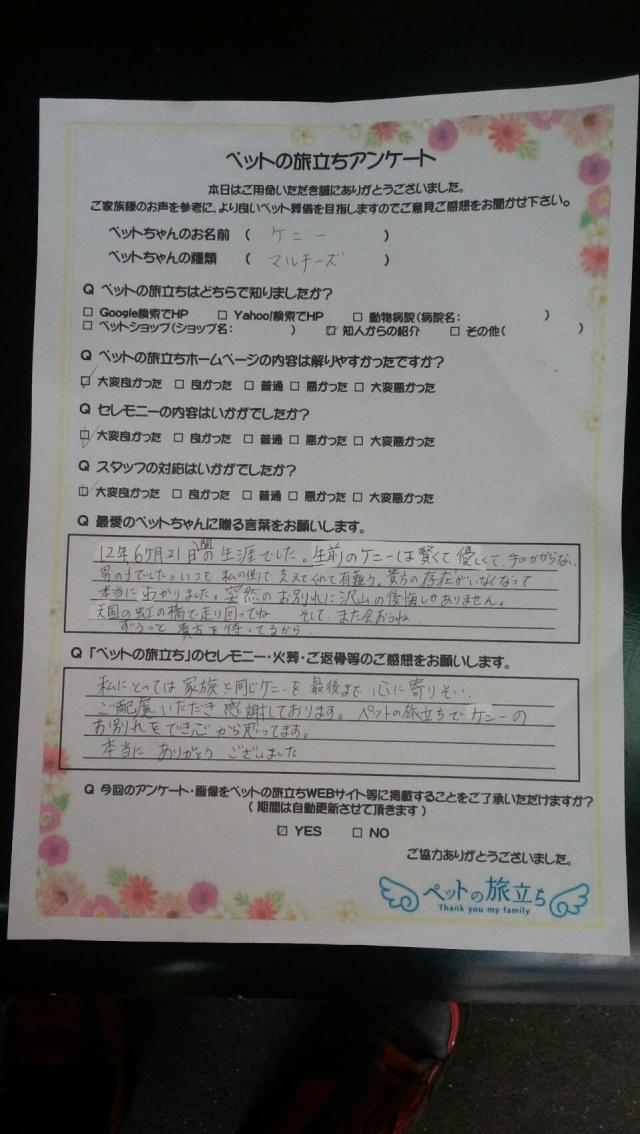 ペットの旅立ちアンケート
本日はご用命いただき誠にありがとうございました。
ご家族様のお声を参考に、より良いペット葬儀を目指しますのでご意見ご感想をお聞かせ下さい。
ペットちゃんのお名前 ( ケニー )
ペットちゃんの種類 ( マルチーズ )
Q ペットの旅立ちはどちらで知りましたか?
□ Google検索でHP □ Yahoo!検索でHP □ 動物病院(病院名: )
□ ペットショップ(ショップ名: ) ☑ 知人からの紹介 □ その他( )
Q ペットの旅立ちホームページの内容は解りやすかったですか?
☑ 大変良かった □ 良かった □ 普通 □ 悪かった □ 大変悪かった
Q セレモニーの内容はいかがでしたか?
☑ 大変良かった □ 良かった □ 普通 □ 悪かった □ 大変悪かった
Q スタッフの対応はいかがでしたか?
☑ 大変良かった □ 良かった □ 普通 □ 悪かった □ 大変悪かった
Q 最愛のペットちゃんに贈る言葉をお願いします。
12年6ヶ月21日間の生涯でした。生前のケニーは賢くて優しくて、手のかからない
男の子でした。いつも私の側で支えてくれて有難う。貴方の存在がいなくなって
本当にわかりました。突然のお別れに沢山の後悔しかありません。
天国の虹の橋で走り回ってね そして、また会おうね。
ずうっと貴方を待ってるから。
Q 「ペットの旅立ち」のセレモニー・火葬・ご返骨等のご感想をお願いします。
私にとっては家族と同じケニーを最後まで心に寄りそい、
ご配慮いただき感謝しております。ペットの旅立ちでケニーの
お別れをでき心から思ってます。
本当にありがとうございました
Q 今回のアンケート・画像をペットの旅立ちWEBサイト等に掲載することをご了承いただけますか?
( 期間は自動更新させて頂きます )
☑ YES □ NO
ご協力ありがとうございました。
ペットの旅立ち
Thank you my family